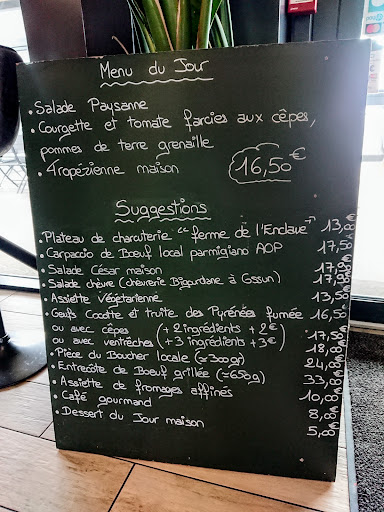 Menu du Jour
• Salade Paysanne
• Courgette et tomate farcies aux cêpes,
pommes de terre grenaille
• Tropézienne maison 16,50€
Suggestions
• Plateau de charcuterie "ferme de l'Enclave" 13,00€
• Carpaccio de Bœuf local parmigiano AOP 17,50
• Salade César maison 17,50
• Salade chèvre (chèvrerie Bigurdane à Gssun) 17,50
• Assiette Végétarienne 13,50
• Oeufs Cocotte et truite des Pyrénées fumée 16,50
ou avec cêpes (+ 2 ingrédients + 2€) 17,50
ou avec ventrêches (+ 3 ingrédients + 3€) 18,00
• Pièce du Boucher locale (≃300gr) 24,00
• Entrecôte de Bœuf grillée (≃650g) 33,00
• Assiette de fromages affinés 10,00
• Café gourmand 8,00
• Dessert du Jour maison 5,00